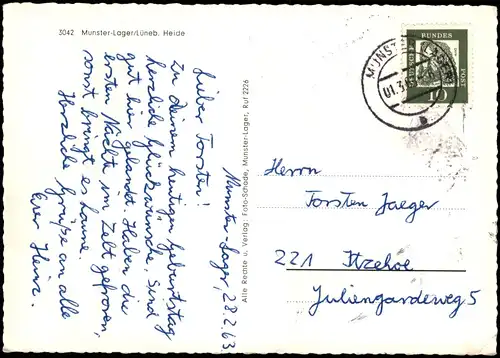 3042 Munster-Lager/Lüneb. Heide
Munster-Lager, 28.2.63
Lieber Torsten!
Zu deinem heutigen Geburtstag
herzliche Glückwünsche. Sind
gut hier gelandet. Haben die
ersten Nächte im Zelt gefroren,
sonst bringt es Laune.
Herzliche Grüße an alle
Euer Heinz.
Alle Rechte u. Verlag: Foto-Schade, Munster-Lager, Ruf 2226
DEUTSCHE
BUNDES
POST
MUNST
01.3.
a
Herrn
Torsten Jaeger
221 Itzehoe
Juliengardeweg 5